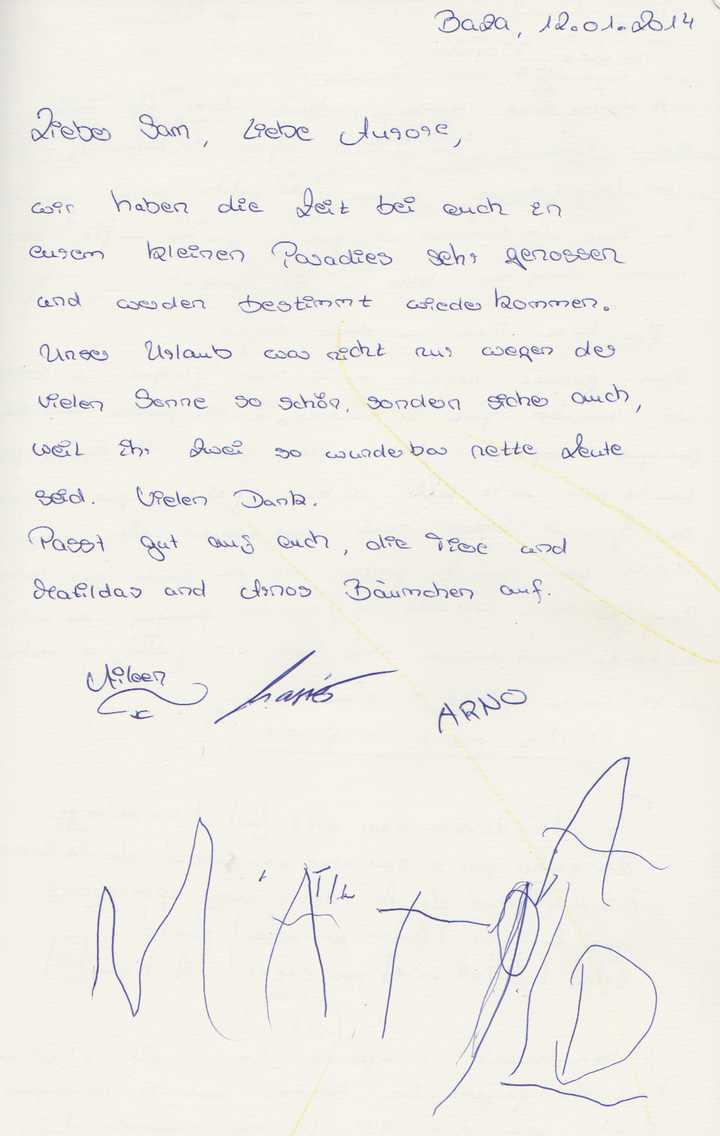 Baza, 12.01.2014
Lieber Sam, Liebe Aurore,
wir haben die Zeit bei euch in
eurem kleinen Paradies sehr genossen
und werden bestimmt wieder kommen.
Unser Urlaub war nicht nur wegen der
vielen Sonne so schön, sondern sicher auch,
weil ihr zwei so wunderbar nette Leute
seid. Vielen Dank.
Passt gut auf euch, die Tiere und
Matildas und Arnos Bäumchen auf.
Aileen
ARNO
MATILDA